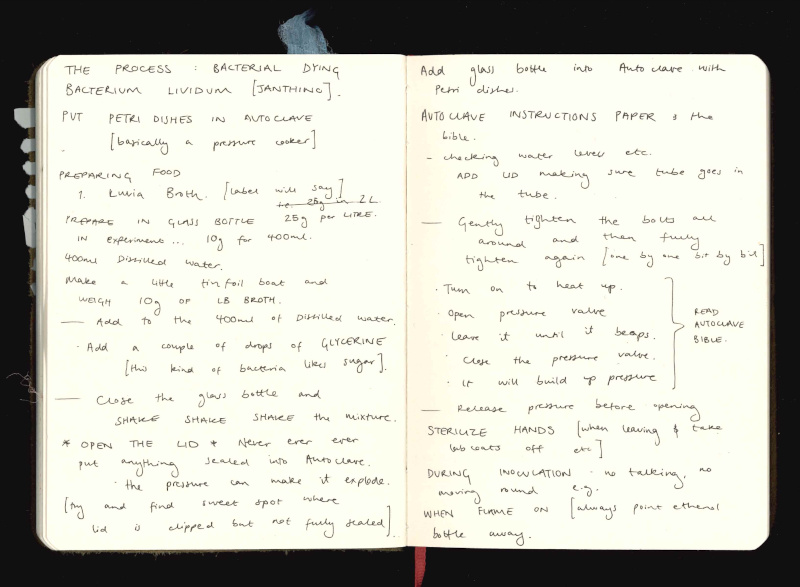 THE PROCESS : BACTERIAL DYING
BACTERIUM LIVIDUM [JANTHINO].
PUT PETRI DISHES IN AUTOCLAVE
[basically a pressure cooker]
PREPARING FOOD
1. Luria Broth. [label will say]
i.e. 25g in 2L
PREPARE IN GLASS BOTTLE 25g per LITRE.
IN experiment... 10g for 400ml.
400ml Distilled water.
Make a little tinfoil boat and
WEIGH 10g OF LB BROTH.
— Add to the 400ml of Distilled water.
· Add a couple of drops of GLYCERINE
[this kind of bacteria likes sugar].
— Close the glass bottle and
SHAKE SHAKE SHAKE the mixture.
* OPEN THE LID * Never ever ever
put anything sealed into Autoclave.
· the pressure can make it explode.
[try and find sweet spot where
lid is clipped but not fully sealed].
Add glass bottle into Autoclave with
Petri dishes.
AUTOCLAVE INSTRUCTIONS PAPER & the
bible.
- checking water level etc.
ADD LID making sure tube goes in
the tube.
— Gently tighten the bolts all
around and then fully
tighten again [one by one bit by bit]
· Turn on to heat up.
· Open pressure valve
· leave it until it beeps.
· Close the pressure valve.
· It will build up pressure
READ
AUTOCLAVE
BIBLE.
— Release pressure before opening
STERILIZE HANDS [when leaving & take
lab coats off etc]
DURING INOCULATION - no talking, no
moving round e.g.
WHEN FLAME ON [always point ethanol
bottle away.